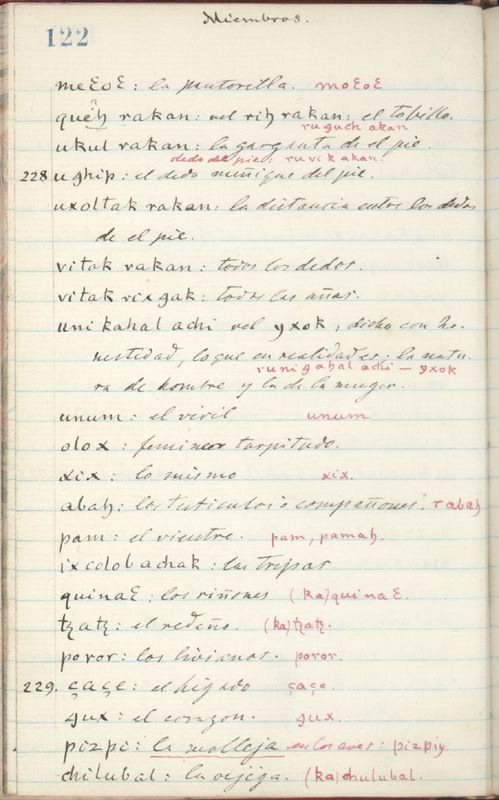 Miembros.
122
meƐoƐ: la pantorilla. moƐoƐ
quēꜧ rakan: vel riꜧ rakan: el tobillo.
ruguch akan
ukul rakan: la garganta de el pie.
dedo del pie: ruvikakan.
228 ughip: el dedo meñique del pie.
uxoltak rakan: la distancia entre los dedos
de el pie.
vitak rakan: todos los dedos.
vitak rixgak: todas las uñas.
unikahal achi vel yxok, dicho con ho-
nestidad, lo que en realidad es: la natu-
runigahal achi — yxok
ra de hombre y la de la muger.
unum: el viril unum
olox: femineo turpitudo.
xix: lo mismo xix.
abaꜧ: los testiculos o compañones. rabaꜧ
pam: el vientre. pam, pamaꜧ.
ixcolobachak: las tripas
quinaƐ: los riñones (ka)quinaƐ.
tꜩatꜩ: el redeño. (ka)tꜩatꜩ.
poror: los livianos. poror.
229. çaçe: el higado çaçe.
gux: el corazon. gux.
pizpi: la molleja en las aves: pizpiy
chilubal: la vejiga. (ka)chulubal.